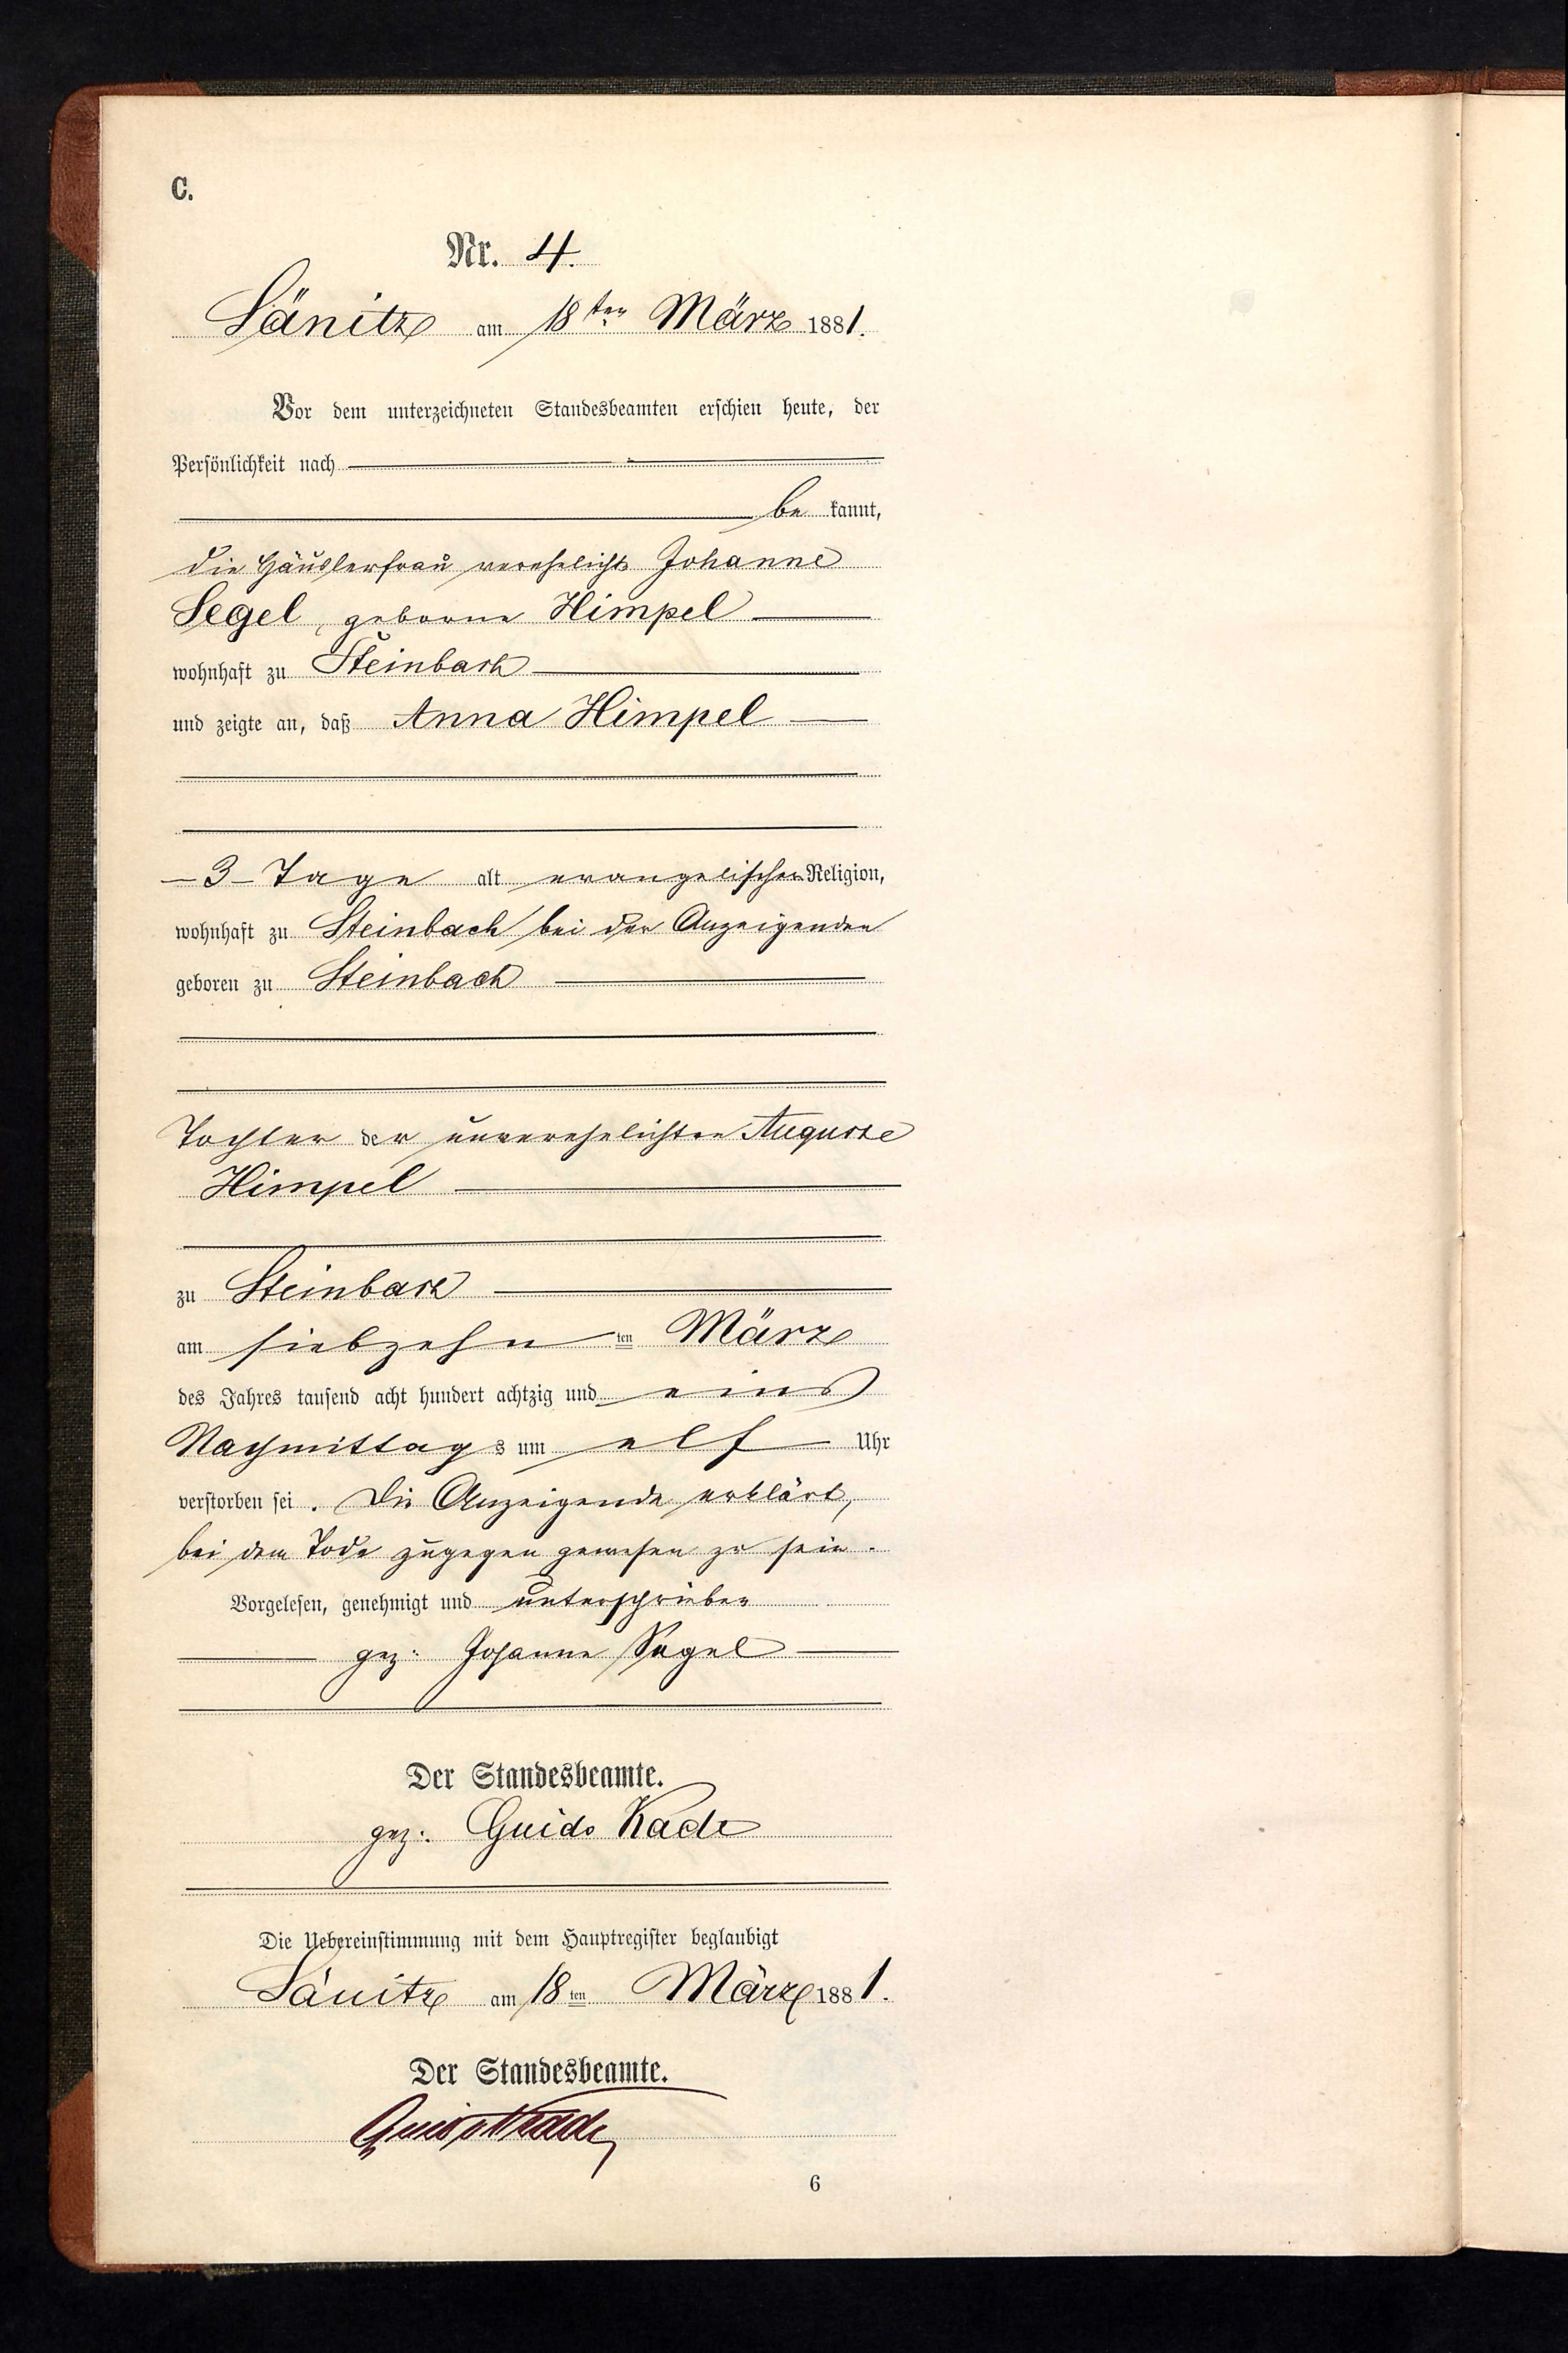 C.
Nr. 4.
Sänitz am 18ten März 1881.
Vor dem unterzeichneten Standesbeamten erschien heute, der
Persönlichkeit nach
be kannt,
die Häuslerfrau verehelichte Johanne
Segel, geborne Himpel
wohnhaft zu Steinbach
und zeigte an, daß Anna Himpel
3 Tage alt evangelischer Religion,
wohnhaft zu Steinbach bei der Anzeigenden
geboren zu Steinbach
Tochter der unverehelichten Auguste
Himpel
zu Steinbach
am siebzehn ten März
des Jahres tausend acht hundert achtzig und eins
Nachmittags um elf Uhr
verstorben sei. Die Anzeigende erklärt,
bei dem Tode zugegen gewesen zu sein.
Vorgelesen, genehmigt und unterschrieben
gez: Johanne Segel
Der Standesbeamte.
gez: Guido Kade
Die Uebereinstimmung mit dem Hauptregister beglaubigt
Sänitz am 18ten März 1881.
Der Standesbeamte.
Guido Kade
6